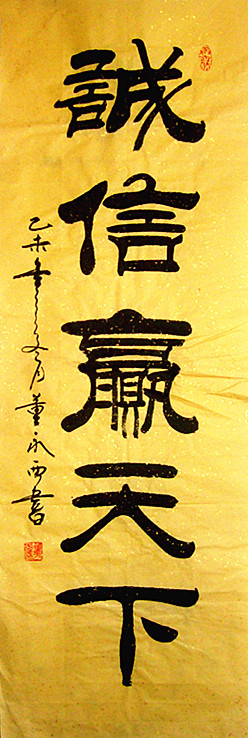 誠信贏天下
乙未年之夏月董永西書